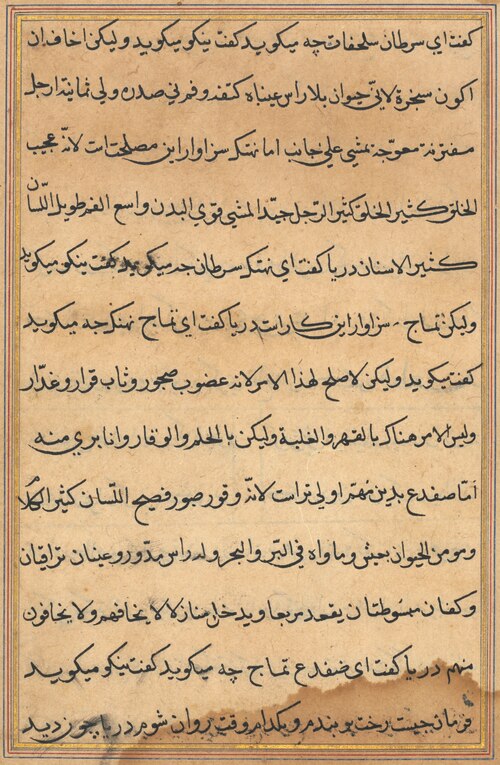 کفت ای سرطان سلحفات چه میکوید کفت نیکو میکوید ولیکن اخاف ان
اکون سخرة لانّي حیوان بلا راس عیناه کتفه و فم في صدره ولي ثمانیة ارجل
مفترنة معوّجة یمشي علي جانب اما نهنک سزاوار این مصلحت است لانّه عجیب
الخلق کثیر الخلق کثیر الرّجل جیّد المشي قوي البدن واسع الفم طویل اللّسان
کثیر الاسنان دریا کفت ای نهنک سرطان چه میکوید کفت نیکو میکوید
ولیکن تمساح سزاوار این کار است دریا کفت ای تمساح نهنک چه میکوید
کفت میکوید ولیکن لا صلح لهذا الامر لانه غضوب ضجور وثاب فرار و غدّار
ولیس الامر هناک بالقهر والغلبة ولیکن بالحلم والوقار وانا بري منه
امّا ضفدع بدین مهم اولی تر است لانّه وقور صبور فصیح اللّسان کثیر الکلام
وهو من الحیوان یعیش و ماواه في البّر والبحر وله راس مدّور و عینان براقتان
وکفان مبسوطتان یقعد مربعا و یدخل منازلا لا یخافهم ولا یخافون
منهم دریا کفت ای ضفدع تمساح چه میکوید کفت نیکو میکوید
فرمان چیست رخت بوبندم و بکدام وقت روان شوم دریا چون دید